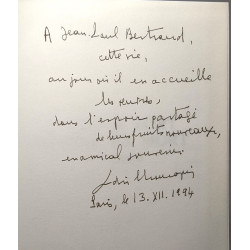 A Jean-Paul Bertrand,
cette vie,
au jour où il en accueille
les
dans l'espoir partagé
de leurs fruits nouveaux,
en amical souvenir
Paris, le 13.XII.1994